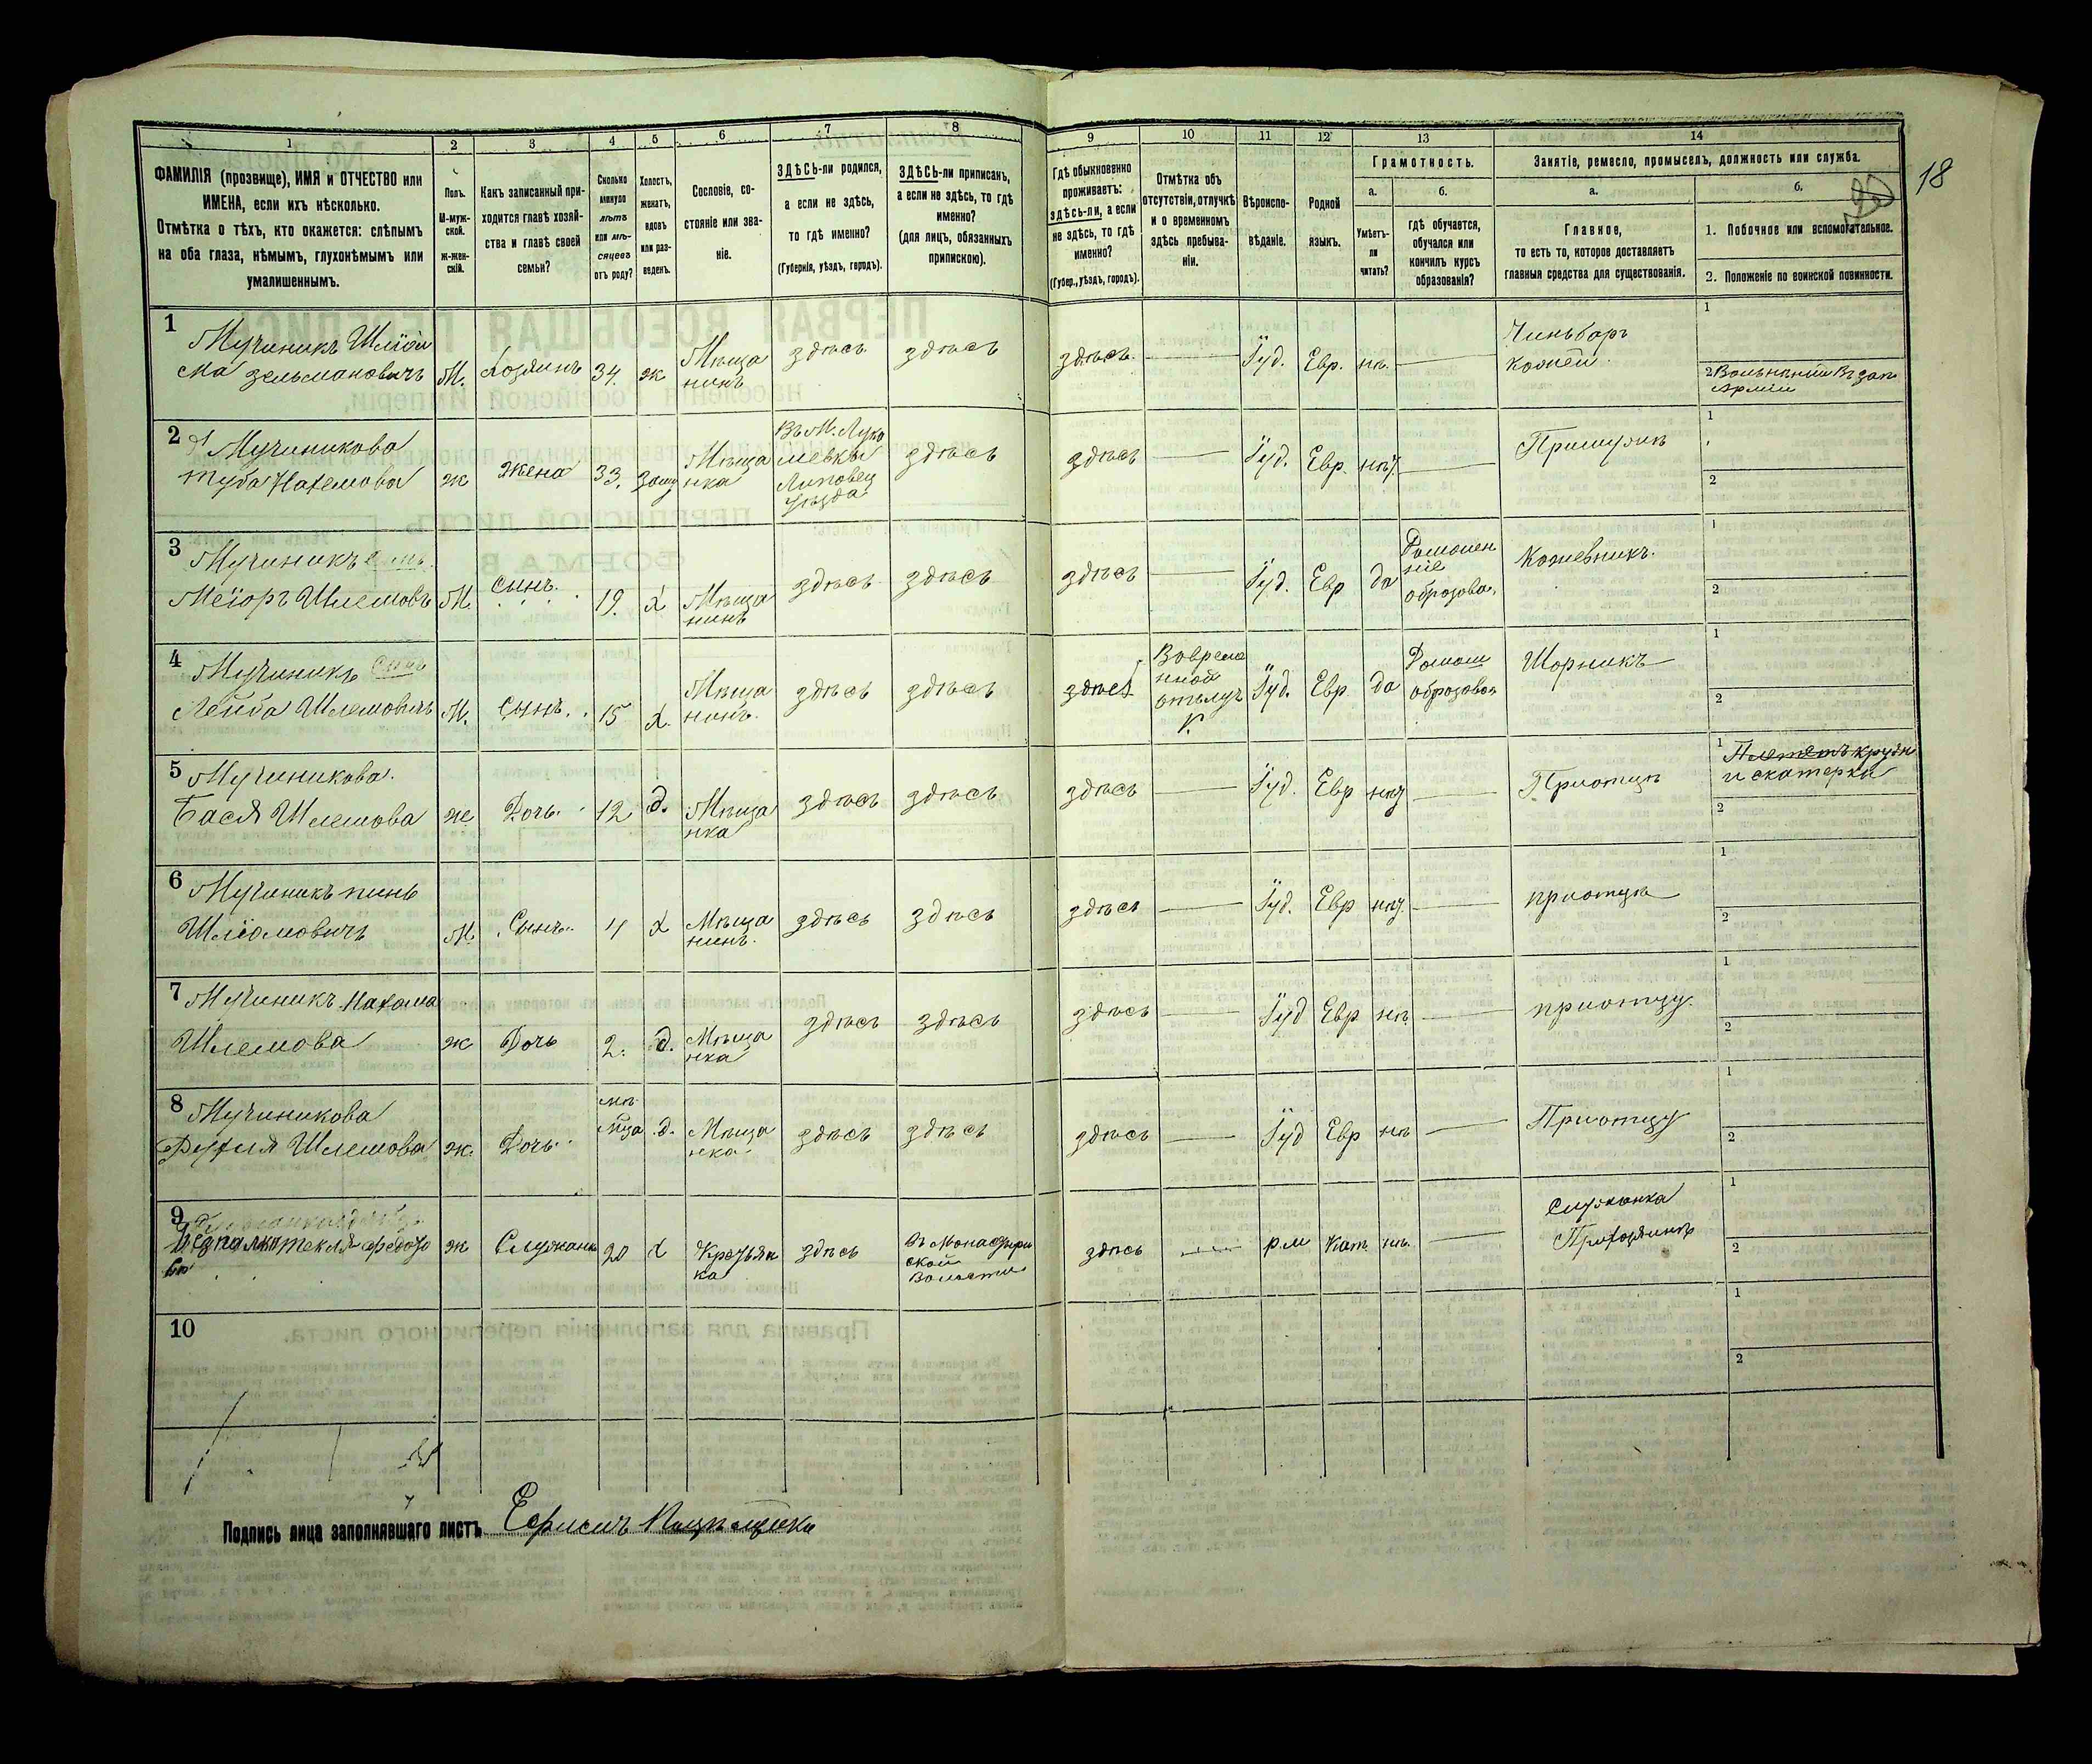 18
1 2 3 4 5 6 7 8 9 10 11 12 13 14
ФАМИЛІЯ (прозвище), ИМЯ и ОТЧЕСТВО или
ИМЕНА, если ихъ нѣсколько.
Отмѣтка о тѣхъ, кто окажется: слѣпымъ
на оба глаза, нѣмымъ, глухонѣмымъ или
умалишеннымъ.
Полъ.
М-муж-
ской.
ж-жен-
скій.
Какъ записанный при-
ходится главѣ хозяй-
ства и главѣ своей
семьи?
Сколько
минуло
лѣтъ
или мѣ-
сяцевъ
отъ роду?
Холостъ,
женатъ,
вдовъ
или раз-
веденъ.
Сословіе, со-
стояніе или зва-
ніе.
ЗДѢСЬ-ли родился,
а если не здѣсь,
то гдѣ именно?
(Губернія, уѣздъ, городъ).
ЗДѢСЬ-ли приписанъ,
а если не здѣсь, то гдѣ
именно?
(для лицъ, обязанныхъ
припискою).
Гдѣ обыкновенно
проживаетъ:
здѣсь-ли, а если
не здѣсь, то гдѣ
именно?
(Губер., уѣздъ, городъ).
Отмѣтка объ
отсутствіи, отлучкѣ
и о временномъ
здѣсь пребыва-
ніи.
Вѣроиспо-
вѣданіе.
Родной
языкъ.
Грамотность.
а.
Умѣетъ-
ли
читать?
б.
гдѣ обучается,
обучался или
кончилъ курсъ
образованія?
Занятіе, ремесло, промыселъ, должность или служба.
а.
Главное,
то есть то, которое доставляетъ
главныя средства для существованія.
б.
1. Побочное или вспомогательное.
2. Положеніе по воинской повинности.
1
Мучиникъ Шліо
ма Зельмановичъ М. Хозяинъ 34. ж Мѣща
нинъ здѣсь здѣсь здѣсь Іуд. Евр. нѣ. Чиньбарь
кожей
1
2
Арміи
2
Мучиникова
Туба Нахемова ж жена 33. Мѣща
нка Въ М. Луко
шевкѣ
Липовец
Уѣзда здѣсь здѣсь Іуд. Евр. При мужѣ
1
2
3
Мучиникъ
Меіоръ Шлемовъ М. сынъ. 19. х Мѣща
нинъ здѣсь здѣсь здѣсь Іуд. Евр да Домашен
ніе
образова. Кожевникъ.
1
2
4
Мучиникъ Сынъ
Лейба Шлемовичъ М. Сынъ. 15 х. Мѣща
нинъ. здѣсь здѣсь здѣсь Вовреме
нной
отьлуч
к. Іуд. Евр. да Домаш
образова Шорникъ
1
2
5
Мучиникова.
Бася Шлемова ж Дочь 12 д. Мѣща
нка здѣсь здѣсь здѣсь Іуд. Евр При отцѣ
1 Плететъ
и скатерки
2
6
Мучиникъ пинь
Шліомовичъ М. Сынъ. 4 х Мѣща
нинъ. здѣсь здѣсь здѣсь Іуд. Евр при отцѣ
1
2
7
Мучиникъ Нахама
Шлемова ж Дочь 2. д. Мѣща
нка здѣсь здѣсь здѣсь Іуд Евр нѣ. при отцу.
1
2
8
Мучиникова
Рухля Шлемова ж. Дочь д. Мѣща
нка здѣсь здѣсь здѣсь Іуд Евр нѣ При отцу
1
2
9
текля федоро
ж Служанка 20 х Крестьян
ка здѣсь въ Монастыри
ской
Волости здѣсь р.м Кат. нѣ. Служанка
При хозяинѣ
1
2
10
1
2
Подпись лица заполнявшаго листъ